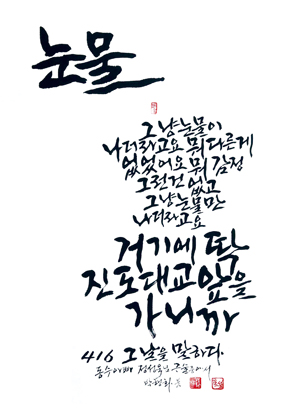 눈물
그냥 눈물이
나더라고요 뭐 다른 게
없었어요 뭐 감정
그런 건 없고
그냥 눈물만
나더라고요
거기에 딱
진도대교 앞을
가니까
416 그날을 말하다.
동수아빠 정성욱님 구술문에서